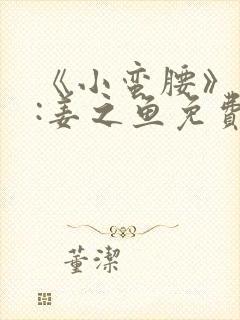 《小蛮腰》
:姜之鱼免費
董潔